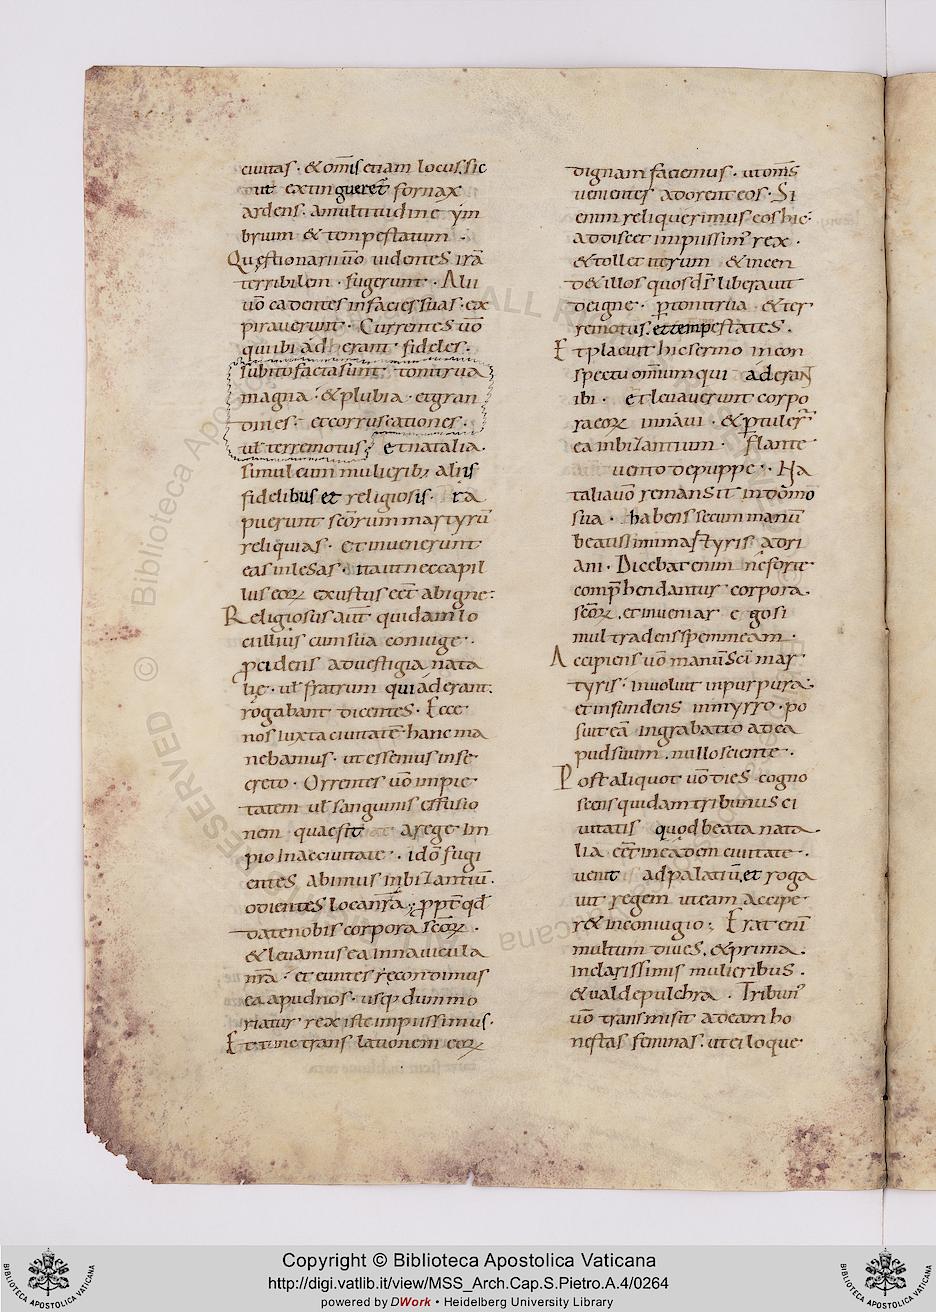 ciuitas · & om̄is etiam locus. sic
ut extingueret̄ fornax
ardens. amultitudine ym
brium & tempestatum ·
Quęstionarii ū̄o uidentes irā
terribilem · fugerunt · Alii
uō cadentes in facies suas · ex
pirauerunt · Currentes uō
qui ibi adherant fideles ·
subito facta sunt tonitrua
magna · & plubia · et gran
dines · et corruscationes ·
ul̄ terremotus · et natalia ·
simul cum mulierib; aliis
fidelibus et religiosis · ra
puerunt sc̄orum martyrū
reliquias · et inuenerunt
eas inlesas · ita ut nec capil
lus eoꝝ exustus eēt ab igne :
Religiosus aūt quidam lo
cullius cum sua coniuge ·
ꝓcidens ad uestigia nata
lię · ul̄ fratrum qui aderant ·
rogabant dicentes · Ecce
nos iuxta ciuitatē hanc ma
nebamus · ut essemus in se
creto · Orrentes uō impie
tatem ul̄ sanguinis effusio
nem quae sit a rege im
pio in ac ciuitate · idō fugi
entes abimus in bizantiū ·
odientes loca nr̄a · ꝓpt̄ qd̄
date nobis corpora sc̄oꝝ ·
& leuamus ea in nauicula
nr̄a · et euntes recondimus
ea apud nos · usq; dum mo
riatur rex iste impiissimus ·
Et tunc translationem eoꝝ
dignam faciemus · ut om̄s
uenientes adorent eos · Si
enim reliquerimus eos hic ·
addiscet impiissim' rex ·
& tollet iterum & incen
d& illos quos dš liberauit
de igne · ꝑ tonitrua · & ter
remotus · et tempestates ·
Et placuit hic sermo in con
spectu omīum qui aderant
ibi · et leuauerunt corpo
ra eoꝝ in nāui · & ꝑtuler̄
ea in bizantium · flante
uento de puppe · Na
talia uō remansit in domo
sua · habens secum manū
beatissimi mastyris adri
ani · Dicebat enim ne forte
comp̄hendantur corpora
sc̄oꝝ · et inueniar ego si
mul tradens spem meam ·
Accipiens uō manū sc̄i mar
tyris · inuoluit in purpura ·
et infundens in myrro · po
suit eā in grabatto ad ca
pud suum · nullo sciente ·
Post aliquot uō dies cogno
scens quidam tribunus ci
uitatis quod beata nata
lia eēt in eadem ciuitate ·
uenit ad palatiū · et roga
uit regem ut eam accipe
r& in coniugio · Erat enī
multum diues · & prima
in clarissimis mulieribus ·
& ualde pulchra · Tribun'
uō transmisit ad eam ho
nestas feminas · ut ei loque
Copyright © Biblioteca Apostolica Vaticana
http://digi.vatlib.it/view/MSS_Arch.Cap.S.Pietro.A.4/0264
powered by DWork • Heidelberg University Library